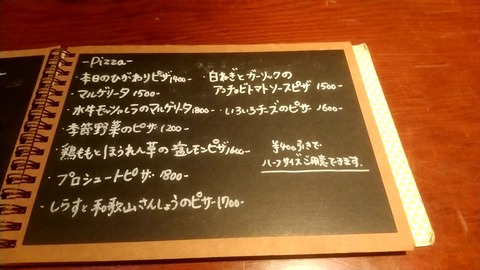 -Pizza-
・本日のひがわりピザ1400-
・マルゲリータ 1500-
・水牛モッツァレラのマルゲリータ1800-
・季節野菜のピザ 1200-
・鶏ももとほうれん草の塩レモンピザ1600-
・プロシュートピザ・1800-
・しらすと和歌山さんしょうのピザ・1700-
・白ねぎとガーリックの
アンチョビトマトソースピザ 1500-
・いろいろチーズのピザ 1600-
¥400引きで
ハーフサイズご用意できます。